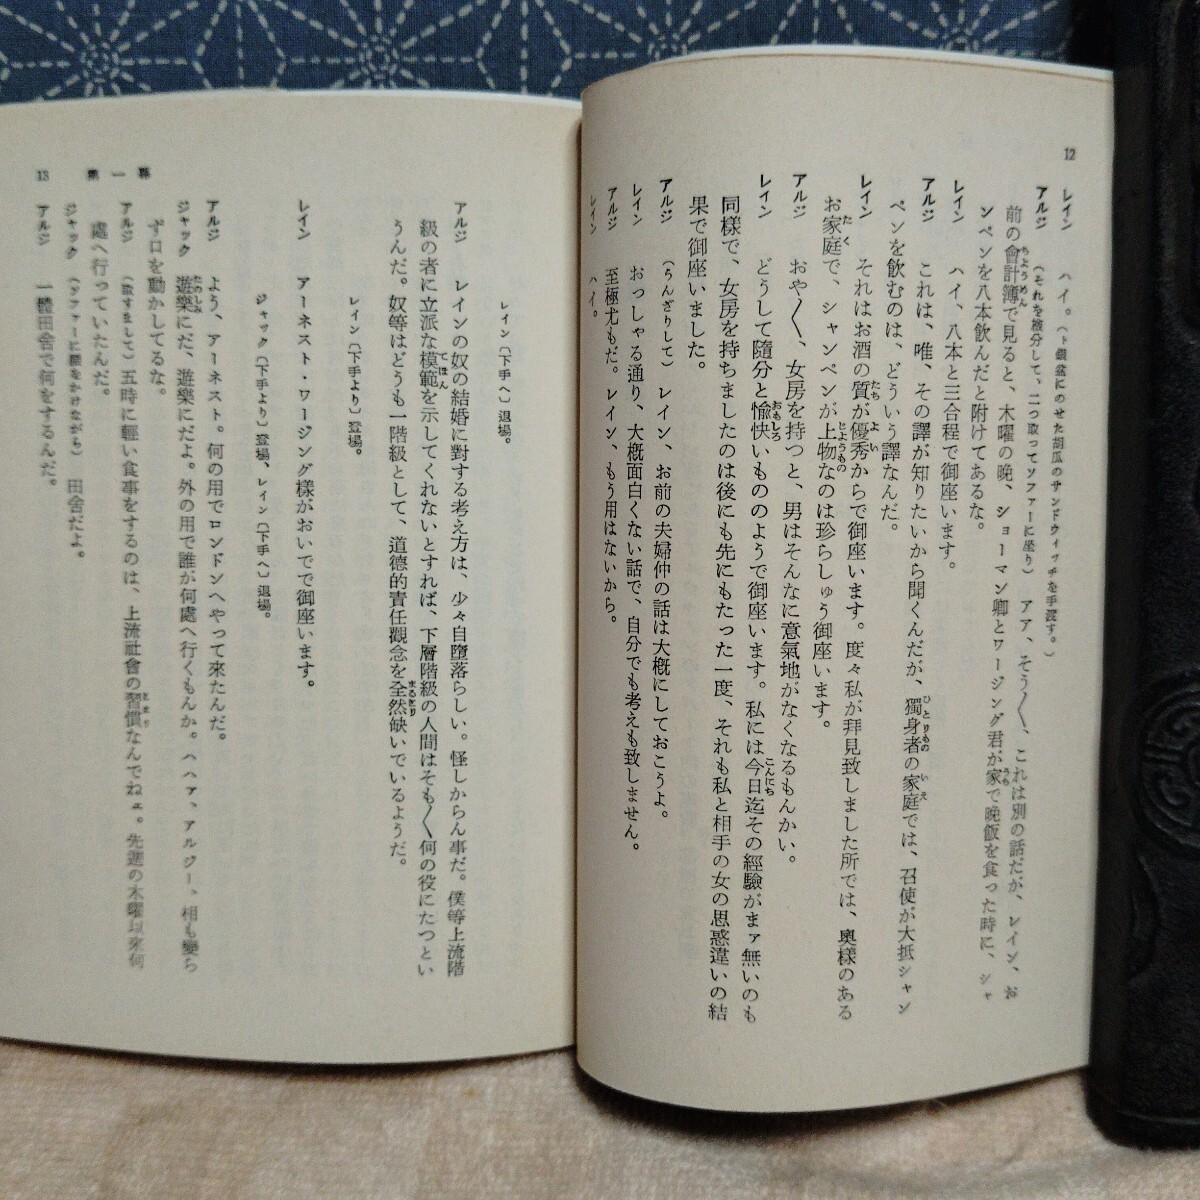 12
レイン　ハイ。(ト銀盆にのせた胡瓜のサンドウィッチを手渡す。)
アルジ　(それを検分して、二つ取ってソファーに坐り)　アア、そう〳〵、これは別の話だが、レイン、お
前の會計簿で見ると、木曜の晩、ショーマン卿とワージング君が家で晩飯を食った時に、シャ
ンペンを八本飲んだと附けてあるな。
レイン　ハイ、八本と三合程で御座います。
アルジ　これは、唯、その譯が知りたいから聞くんだが、獨身者の家庭では、召使が大抵シャン
ペンを飲むのは、どういう譯なんだ。
レイン　それはお酒の質が優秀からで御座います。度々私が拜見致しました所では、奧樣のある
お家庭で、シャンペンが上物なのは珍らしゅう御座います。
アルジ　おや〳〵、女房を持つと、男はそんなに意氣地がなくなるもんかい。
レイン　どうして隨分と愉快いもののようで御座います。私には今日迄その經驗がまァ無いのも
同樣で、女房を持ちましたのは後にも先にもたった一度、それも私と相手の女の思惑違いの結
果で御座いました。
アルジ　(うんざりして)　レイン、お前の夫婦仲の話は大概にしておこうよ。
レイン　おっしゃる通り、大概面白くない話で、自分でも考えも致しません。
アルジ　至極尤もだ。レイン、もう用はないから。
レイン　ハイ。
13　第一幕
レイン〔下手へ〕退場。
アルジ　レインの奴の結婚に對する考え方は、少々自墮落らしい。怪しからん事だ。僕等上流階
級の者に立派な模範を示してくれないとすれば、下層階級の人間はそも〳〵何の役にたつとい
うんだ。奴等はどうも一階級として、道德的責任觀念を全然缺いでいるようだ。
レイン〔下手より〕登場。
レイン　アーネスト・ワージング樣がおいでで御座います。
ジャック〔下手より〕登場、レイン〔下手へ〕退場。
アルジ　よう、アーネスト。何の用でロンドンへやって來たんだ。
ジャック　遊樂にだ、遊樂にだよ。外の用で誰が何處へ行くもんか。ハハァ、アルジー、相も變ら
ず口を動かしてるな。
アルジ　(取すまして)　五時に輕い食事をするのは、上流社會の習慣なんでねェ。先週の木曜以來何
處へ行っていたんだ。
ジャック　(ソファーに腰をかけながら)　田舍だよ。
アルジ　一體田舍で何をするんだ。